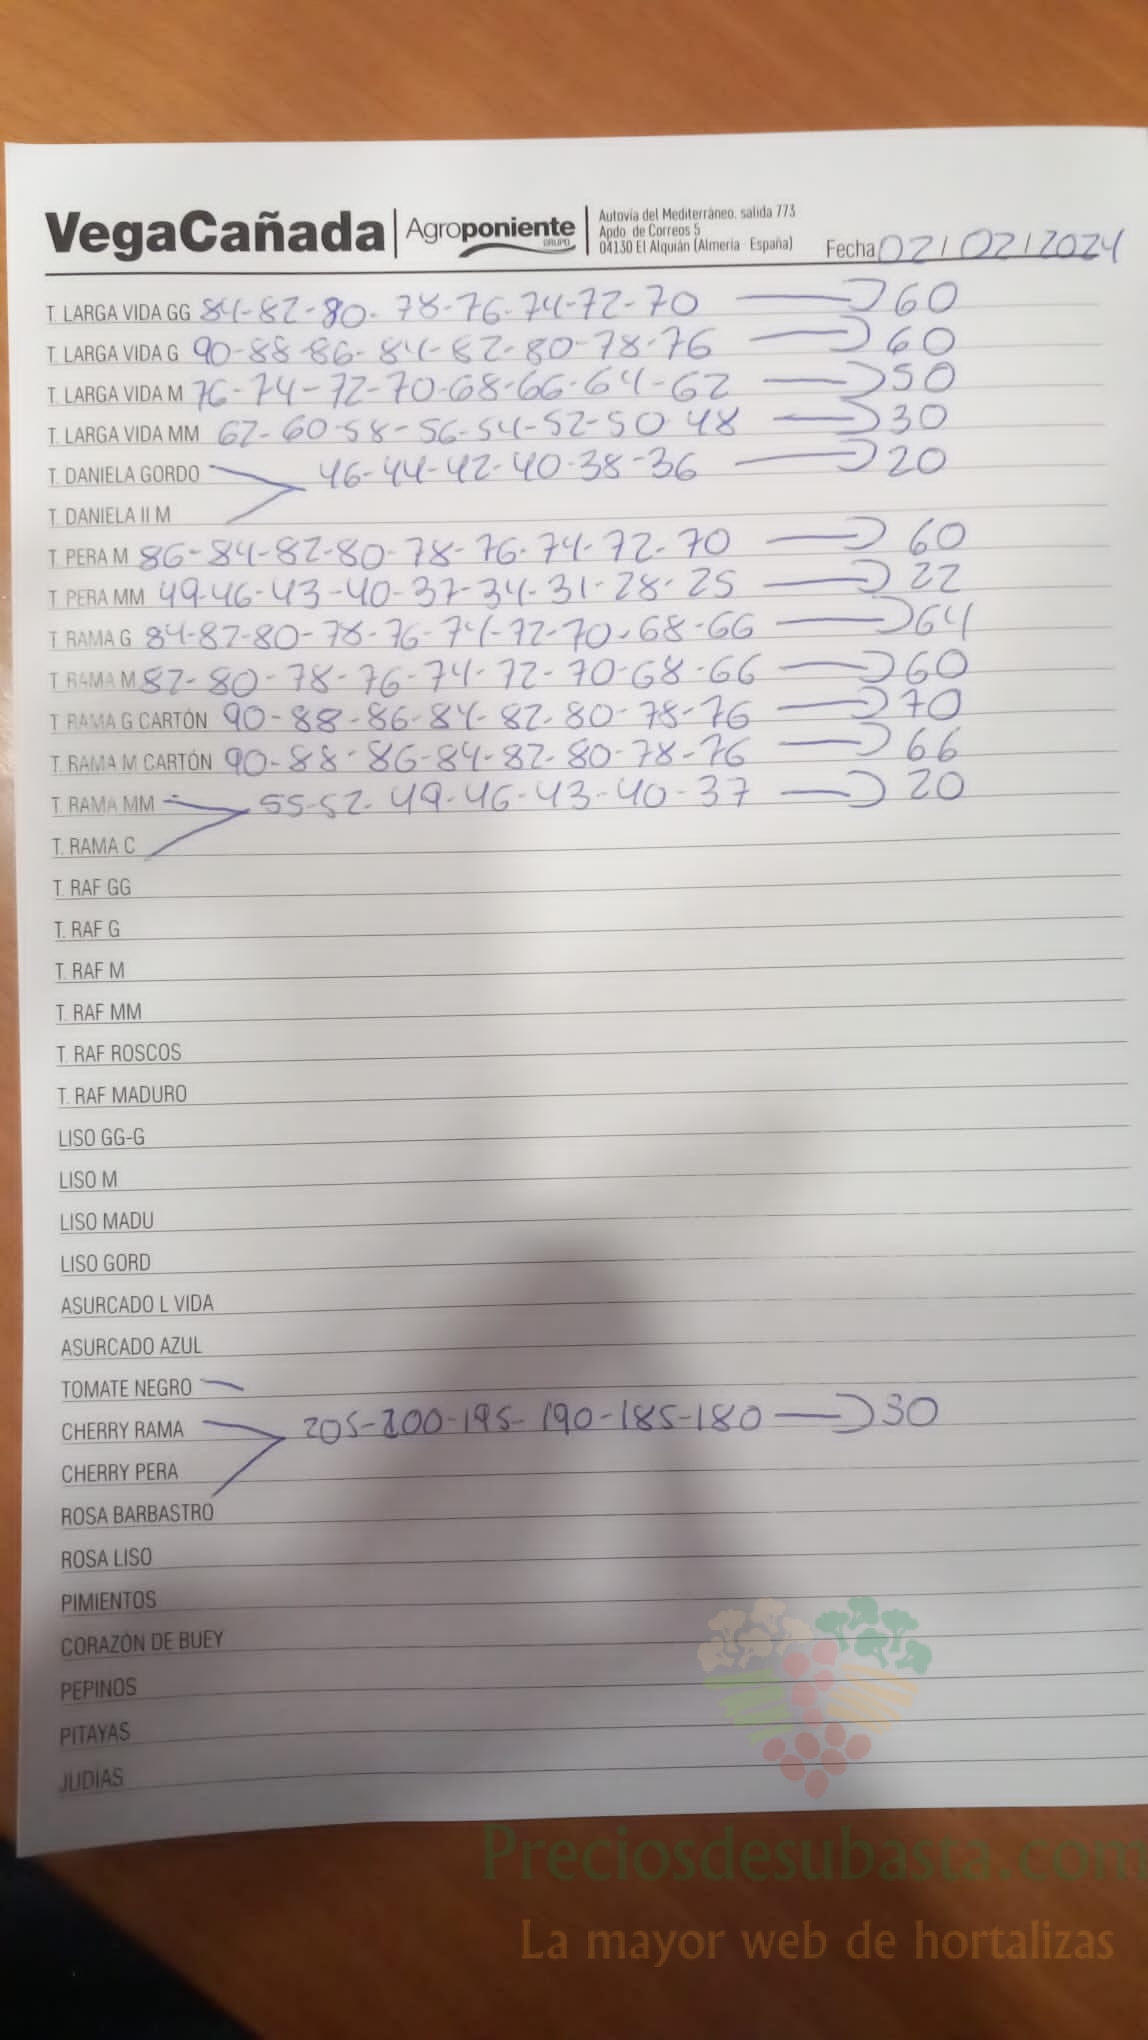 VegaCañada Agroponiente GRUPO
Autovía del Mediterráneo, salida 773
Apdo. de Correos 5
04130 El Alquián (Almería - España)
Fecha 02/02/2024
T. LARGA VIDA GG 84-82-80-78-76-74-72-70 60
T. LARGA VIDA G 90-88-86-84-82-80-78-76 60
T. LARGA VIDA M 76-74-72-70-68-66-64-62 50
T. LARGA VIDA MM 62-60-58-56-54-52-50-48 30
T. DANIELA GORDO 46-44-42-40-38-36 20
T. DANIELA II M
T. PERA M 86-84-82-80-78-76-74-72-70 60
T. PERA MM 49-46-43-40-37-34-31-28-25 22
T RAMA G 84-82-80-78-76-74-72-70-68-66 64
T RAMA M 82-80-78-76-74-72-70-68-66 60
T RAMA G CARTÓN 90-88-86-84-82-80-78-76 70
T. RAMA M CARTÓN 90-88-86-84-82-80-78-76 66
T. RAMA MM 55-52-49-46-43-40-37 20
T. RAMA C
T. RAF GG
T. RAF G
T. RAF M
T. RAF MM
T. RAF ROSCOS
T. RAF MADURO
LISO GG-G
LISO M
LISO MADU
LISO GORD
ASURCADO L VIDA
ASURCADO AZUL
TOMATE NEGRO
CHERRY RAMA 205-200-195-190-185-180 30
CHERRY PERA
ROSA BARBASTRO
ROSA LISO
PIMIENTOS
CORAZÓN DE BUEY
PEPINOS
PITAYAS
JUDÍAS
Preciosdesubasta.com
La mayor web de hortalizas